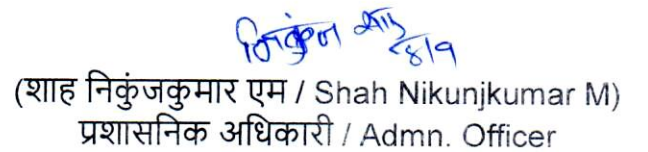 निकुंज शाह
8/9
(शाह निकुंजकुमार एम / Shah Nikunjkumar M)
प्रशासनिक अधिकारी / Admn. Officer